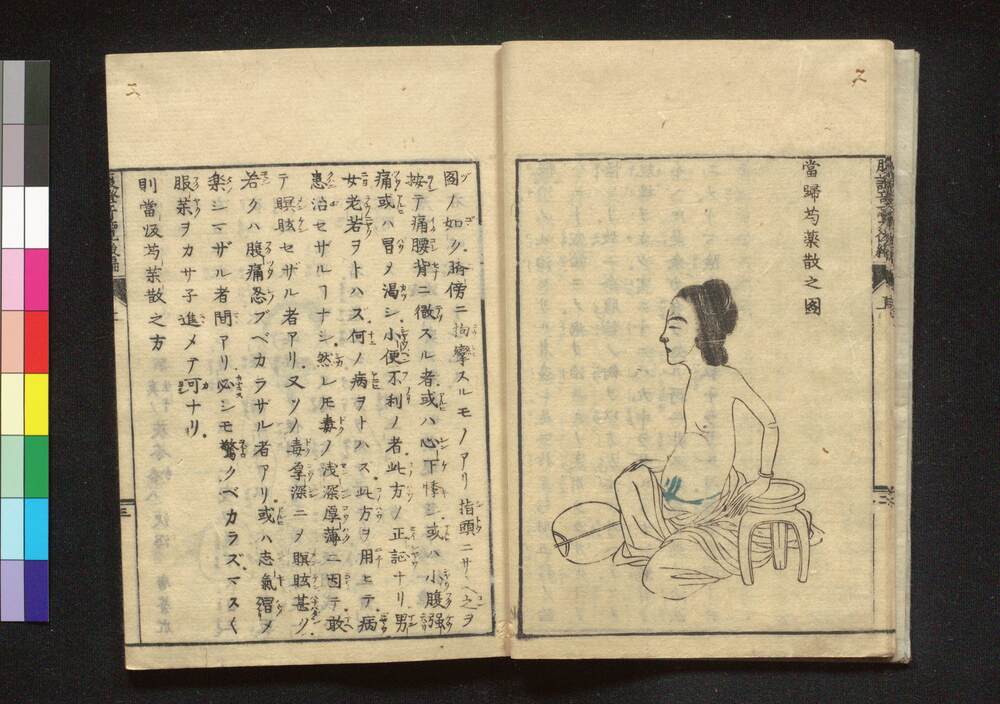 當歸芍薬散之図
図ノ如ク臍傍ニ拘攣スルモノアリ指頭ニサヘ之ヲ
按テ痛腰背ニ徹スル者或ハ心下悸或ハ小腹强
痛或ハ冒メ渇シ小便不利ノ者此方ノ正証ナリ男
女老若ヲトハス何ノ病ヲトハス此方ヲ用ヒテ病
患治セザルヿナシ然レ𪜈毒ノ浅深厚薄ニ因テ敢
テ瞑眩セザル者アリ又ソノ毒尊深ニヲ瞑眩甚ク
若クハ腹痛忍ブベカラザル者アリ或ハ志氣ヲメ
楽シマザル者間アリ必シモ驚クベカラズマスく
服薬ヲカサ子進メテ可ナリ
則當皈芍薬散之方